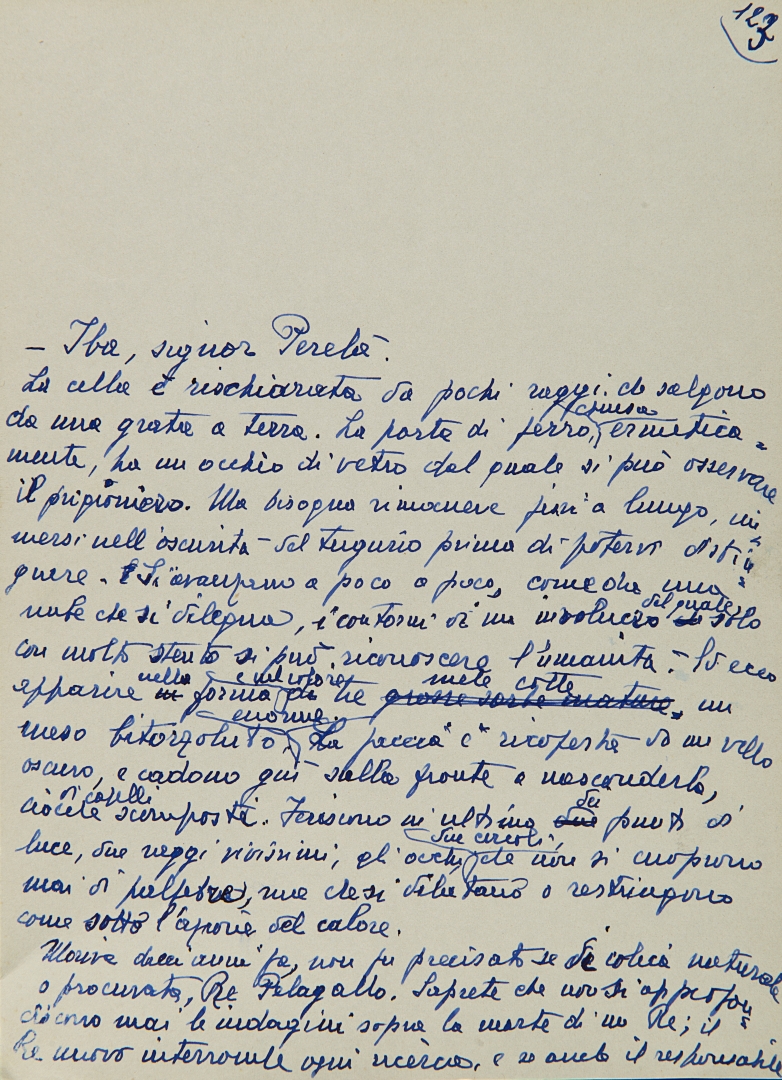 123
– Iba, signor Perelà.
La cella è rischiarata da pochi raggi che salgono
da una grata a terra. La porta di ferro, chiusa ermetica=
mente, ha un occhio di vetro dal quale si può osservare
il prigioniero. Ma bisogna rimanere fissi a lungo, im=
mersi nell'oscurità del tugurio prima di potervi distin=
guere. Si avanzano a poco a poco, come da una
nube che si dilegua, i contorni di un involucro del quale solo
con molto stento si può riconoscere l'umanità. Ed ecco
apparire nella forma e nel colore di tre grosse sorbe mature mele cotte, un
naso bitorzoluto, enorme. La faccia è ricoperta da un vello
oscuro, e cadono giù sulla fronte a nasconderla,
ciocche di capelli scomposte. Feriscono in ultimo due da punti di
luce, due raggi vivissimi, gli occhi, due cerchi, che non si cuoprono
mai di palpebre, ma che si dilatano o restringono
come sotto l'azione del calore.
Moriva dieci anni fa, non fu precisato se di colica naturale
o procurata, Re Pelagallo. Saprete che non si approfon=
discono mai le indagini sopra la morte di un Re; il
Re nuovo interrompe ogni ricerca, e se anche il responsabile